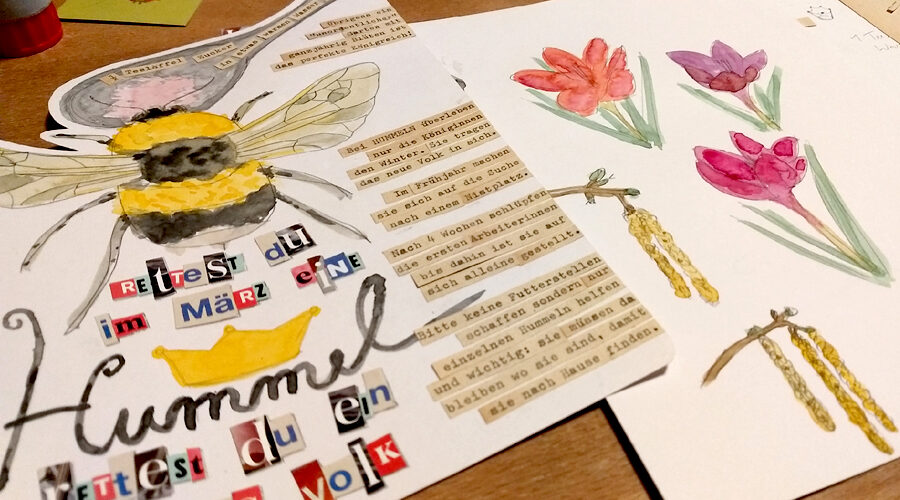 ½ Teelöffel Zucker
in etwas warmem Wasser
Übrigens ein
"unordentlicher"
Garten mit
ganzjährig Blüten ist
das perfekte Königreich!
Bei HUMMELN überleben
nur die Königinnen
den Winter. Sie tragen
das neue Volk in sich.
Im Frühjahr machen
sie sich auf die Suche
nach einem Nistplatz.
Nach 4 Wochen schlüpfen
die ersten Arbeiterinnen
bis dahin ist sie auf
sich alleine gestellt.
Bitte keine Futterstellen
schaffen sondern nur
einzelnen Hummeln helfen
und wichtig: sie müssen da
bleiben wo sie sind, damit
sie nach Hause finden.
RETTEST du
im MäRZ eiNE
Hummel
RETTEST du ein
VOLK